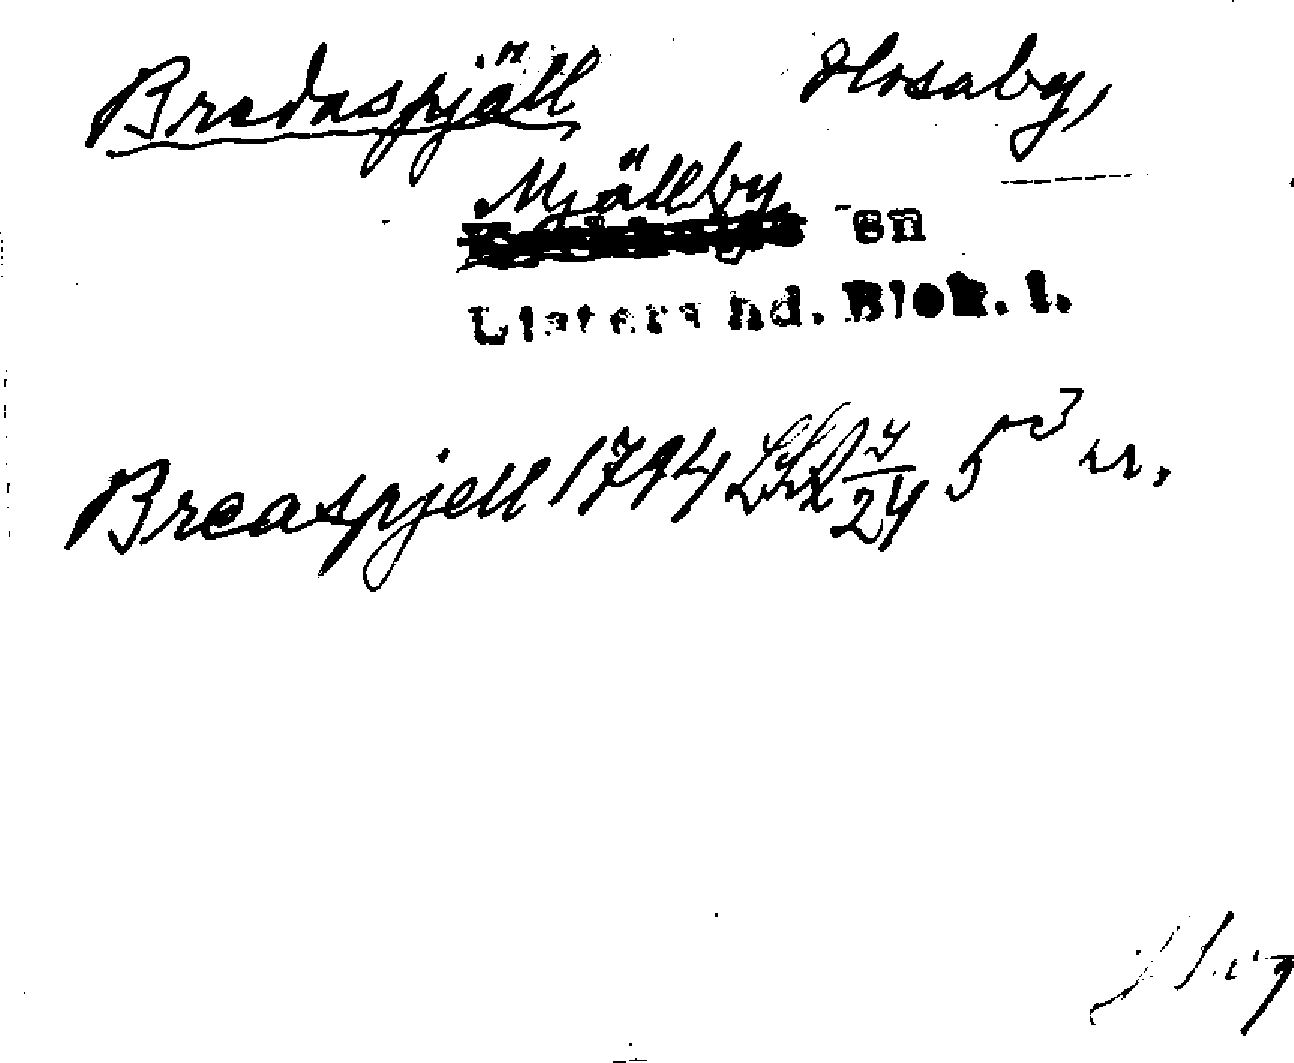 Bredaspjäll Hosaby,
Mjällby en
Listers hd. Blek. l.
Breaspjell 1794 5 3 ur.